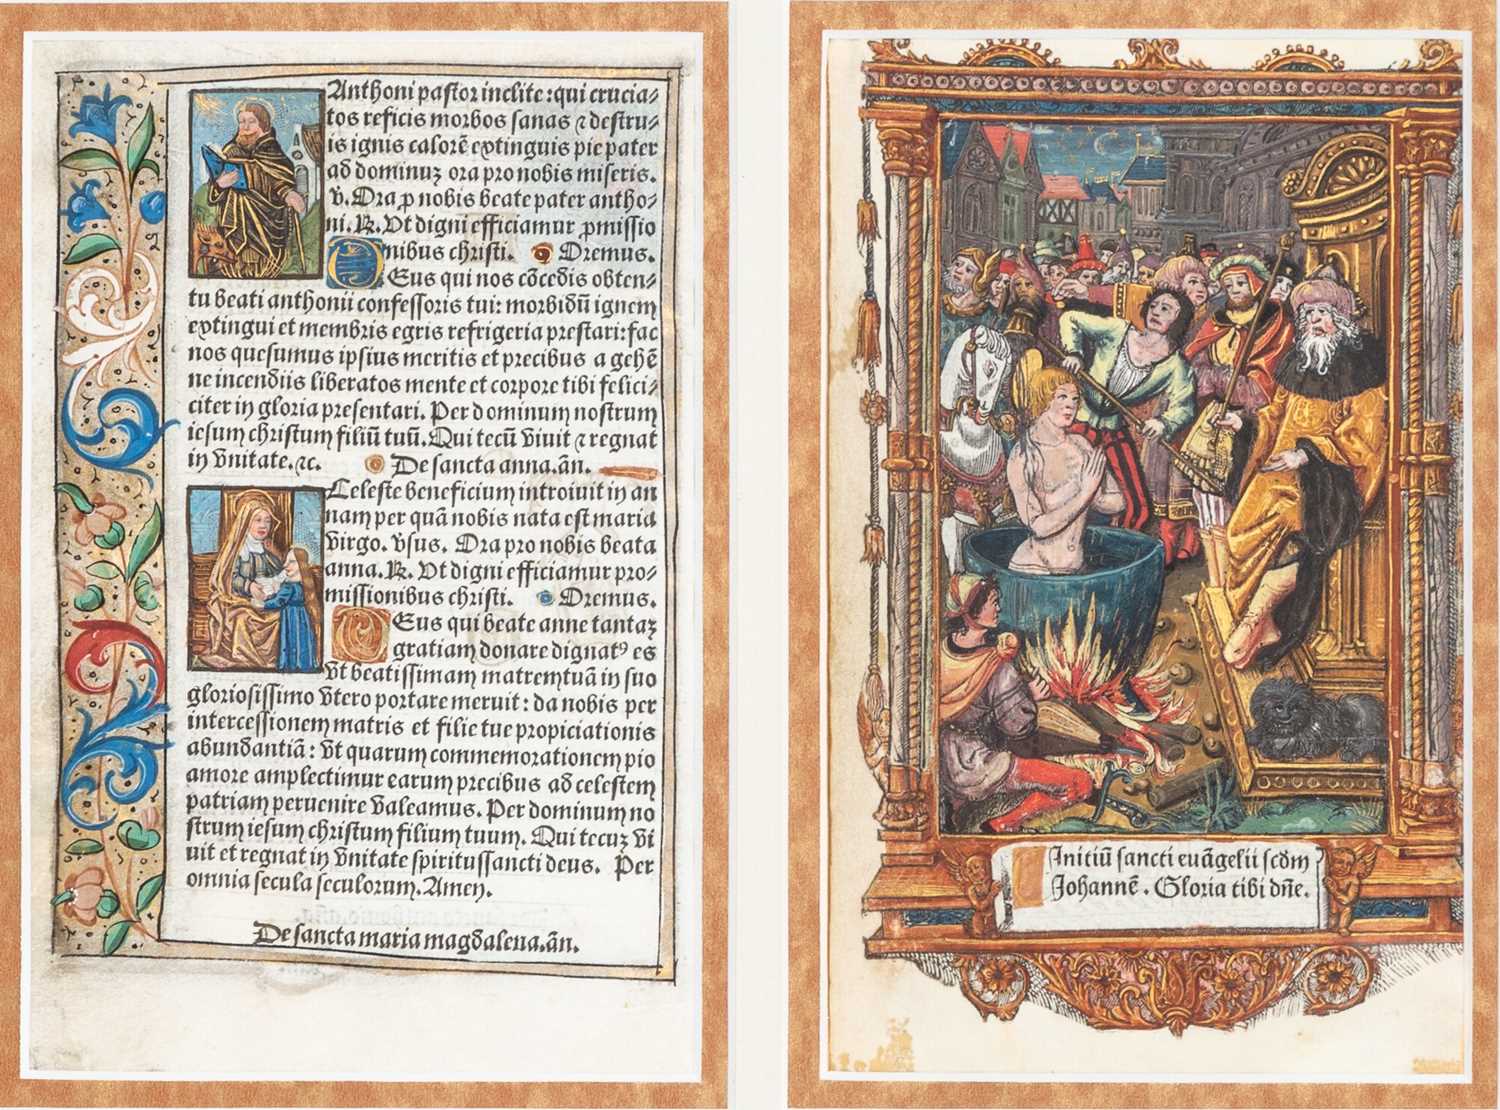 Anthoni pastor inclite: qui crucia⸗
tos reficis morbos sanas ⁊ destru⸗
is ignis calorē extinguis pie pater
ad dominuȝ ora pro nobis miseris.
v. Ora ꝓ nobis beate pater antho⸗
ni. ℟. Vt digni efficiamur ꝓmissio
nibus christi. Oremus.
DEus qui nos cōcedis obten⸗
tu beati anthonii confessoris tui: morbidū ignem
extingui et membris egris refrigeria prestari: fac
nos quesumus ipsius meritis et precibus a gehē
ne incendiis liberatos mente et corpore tibi felici⸗
citer in gloria presentari. Per dominum nostrum
iesum christum filiū tuū. Qui tecū viuit ⁊ regnat
in vnitate. ⁊c. De sancta anna. añ.
Celeste beneficium introiuit in an
nam per quā nobis nata est maria
virgo. vsus. Ora pro nobis beata
anna. ℟. Vt digni efficiamur pro⸗
missionibus christi. Oremus.
DEus qui beate anne tantaȝ
gratiam donare dignatꝰ es
vt beatissimam matrem tuā in suo
gloriosissimo vtero portare meruit: da nobis per
intercessionem matris et filie tue propiciationis
abundantiā: vt quarum commemorationem pio
amore amplectimur earum precibus ad celestem
patriam peruenire valeamus. Per dominum no
strum iesum christum filium tuum. Qui tecuȝ vi
uit et regnat in vnitate spiritussancti deus. Per
omnia secula seculorum. Amen.
De sancta maria magdalena. añ.
Initiū sancti euāgelii scdm
Johannē. Gloria tibi dñe.